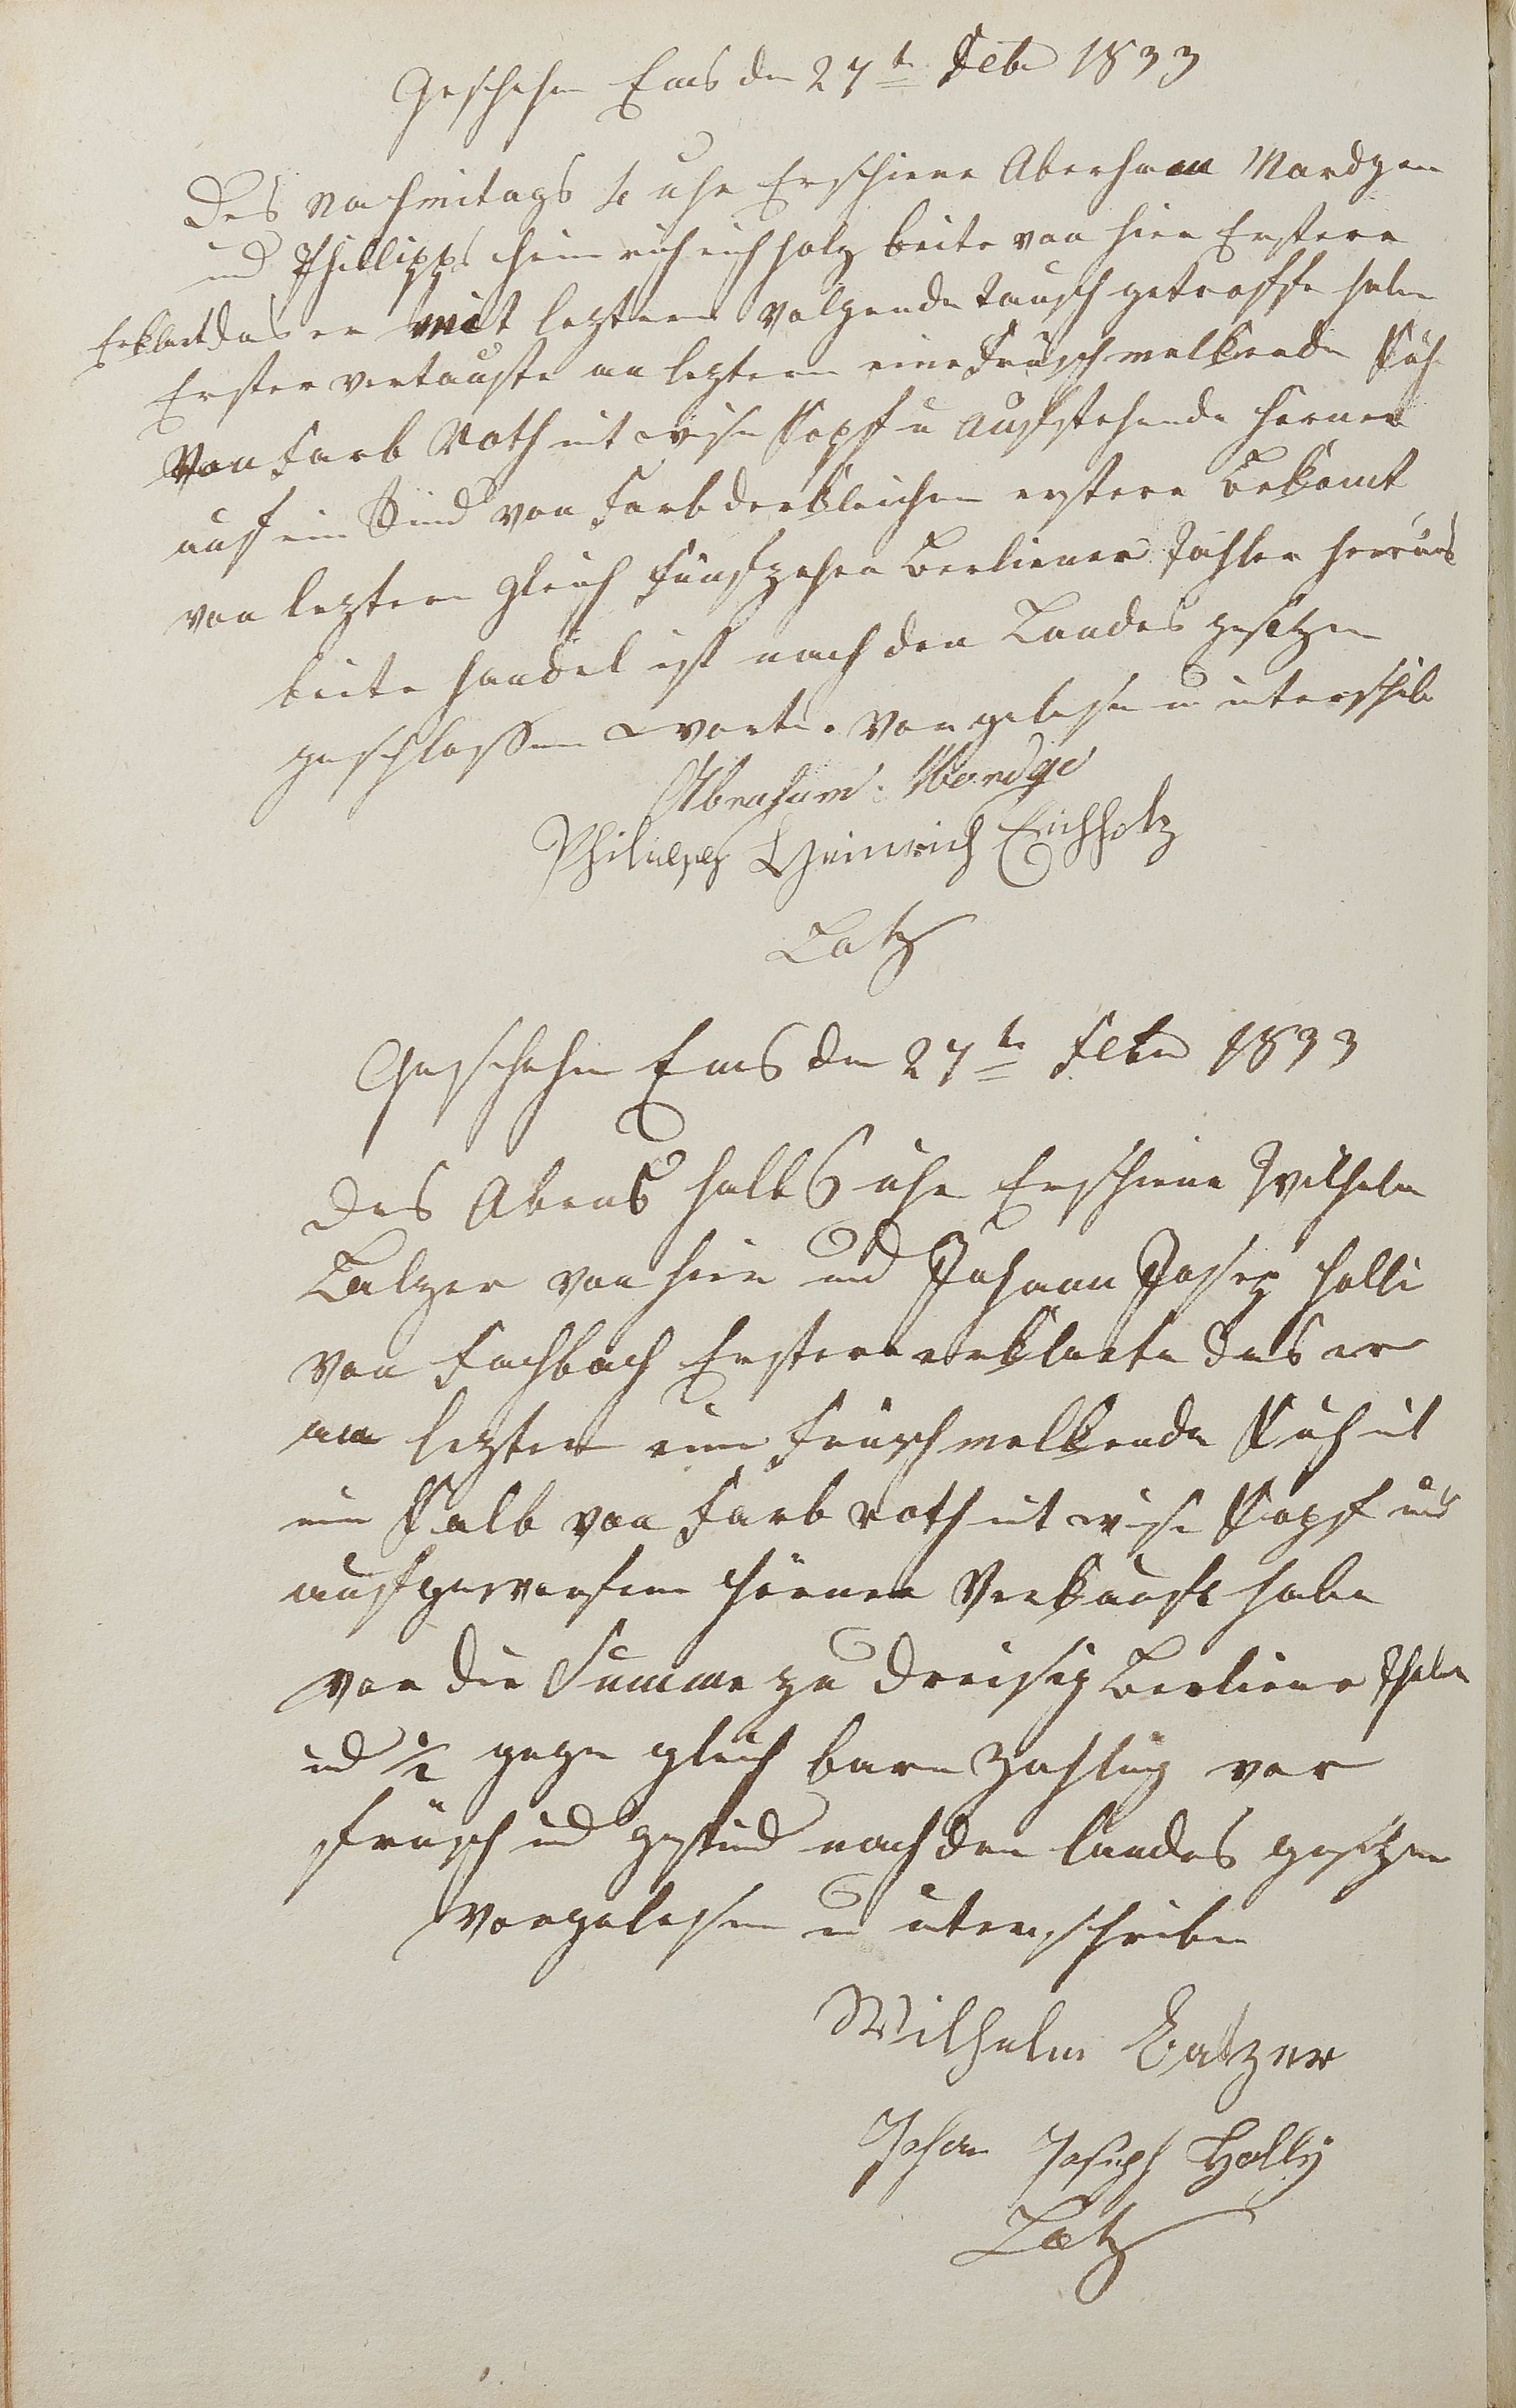 Geschehen Ems den 27te Febr 1833
Des Nachmitags 4 uhr Erschiene Aberham Mardgen
und Phillipps Heinrich eichholz beite von hier Erstere
Erklert das er mit leztern volgende tausch getroffe habe
Erster vertauste an leztern eine Frischmelkende Kuh
Von Farb Roth mit weise Kopf u aufstehende Herner
auf ein Rind von Farb derkleichen erstere Bekomt
von leztern gleich Funfzehen Berliener Tahler heraus
beite handel ist nach den Landes gesetzen
geschlossen worte. vorgelesen u unterschribe
Abraham Mardge
Philipp Heinrich Eichholz
Latz
Geschehen Ems den 27te Febr 1833
Des Abens halb 6 uhr Erschiene Wilhelm
Balzer von hier und Johann Josep Holli
von Fachbach Erstere erklerte das er
an lezter eine Frischmelkende Kuh mit
ein Kalb von Farb roth mit weise Kopf und
aufgeworfene Hörner Verkauft habe
vor die Summe zu Dreisig Berliener Thaler
und ½ gegen gleich bare Zahlung vor
frisch und gesund nach den landes gesetzen
vorgelesen u unterschriben
Wilhelm Balzer
Johan Joseph Holly
Latz